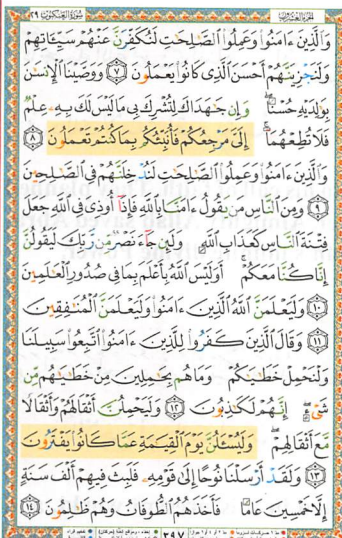 سُورَةُ العَنكَبُوت ٢٩
وَالَّذِينَ ءَامَنُوا۟ وَعَمِلُوا۟ الصَّـٰلِحَـٰتِ لَنُكَفِّرَنَّ عَنْهُمْ سَيِّـَٔاتِهِمْ
وَلَنَجْزِيَنَّهُمْ أَحْسَنَ الَّذِى كَانُوا۟ يَعْمَلُونَ ٧ وَوَصَّيْنَا الْإِنسَـٰنَ
بِوَٰلِدَيْهِ حُسْنًا ۖ وَإِن جَـٰهَدَاكَ لِتُشْرِكَ بِى مَا لَيْسَ لَكَ بِهِۦ عِلْمٌ
فَلَا تُطِعْهُمَا ۚ إِلَىَّ مَرْجِعُكُمْ فَأُنَبِّئُكُم بِمَا كُنتُمْ تَعْمَلُونَ ٨
وَالَّذِينَ ءَامَنُوا۟ وَعَمِلُوا۟ الصَّـٰلِحَـٰتِ لَنُدْخِلَنَّهُمْ فِى الصَّـٰلِحِينَ
٩ وَمِنَ النَّاسِ مَن يَقُولُ ءَامَنَّا بِاللَّهِ فَإِذَآ أُوذِىَ فِى اللَّهِ جَعَلَ
فِتْنَةَ النَّاسِ كَعَذَابِ اللَّهِ وَلَئِن جَآءَ نَصْرٌ مِّن رَّبِّكَ لَيَقُولُنَّ
إِنَّا كُنَّا مَعَكُمْ ۚ أَوَلَيْسَ اللَّهُ بِأَعْلَمَ بِمَا فِى صُدُورِ الْعَـٰلَمِينَ
١٠ وَلَيَعْلَمَنَّ اللَّهُ الَّذِينَ ءَامَنُوا۟ وَلَيَعْلَمَنَّ الْمُنَـٰفِقِينَ
١١ وَقَالَ الَّذِينَ كَفَرُوا۟ لِلَّذِينَ ءَامَنُوا۟ اتَّبِعُوا۟ سَبِيلَنَا
وَلْنَحْمِلْ خَطَـٰيَـٰكُمْ وَمَا هُم بِحَـٰمِلِينَ مِنْ خَطَـٰيَـٰهُم مِّن
شَىْءٍ ۖ إِنَّهُمْ لَكَـٰذِبُونَ ١٢ وَلَيَحْمِلُنَّ أَثْقَالَهُمْ وَأَثْقَالًا
مَّعَ أَثْقَالِهِمْ ۖ وَلَيُسْـَٔلُنَّ يَوْمَ الْقِيَـٰمَةِ عَمَّا كَانُوا۟ يَفْتَرُونَ
١٣ وَلَقَدْ أَرْسَلْنَا نُوحًا إِلَىٰ قَوْمِهِۦ فَلَبِثَ فِيهِمْ أَلْفَ سَنَةٍ
إِلَّا خَمْسِينَ عَامًا فَأَخَذَهُمُ الطُّوفَانُ وَهُمْ ظَـٰلِمُونَ ١٤
٣٩٧